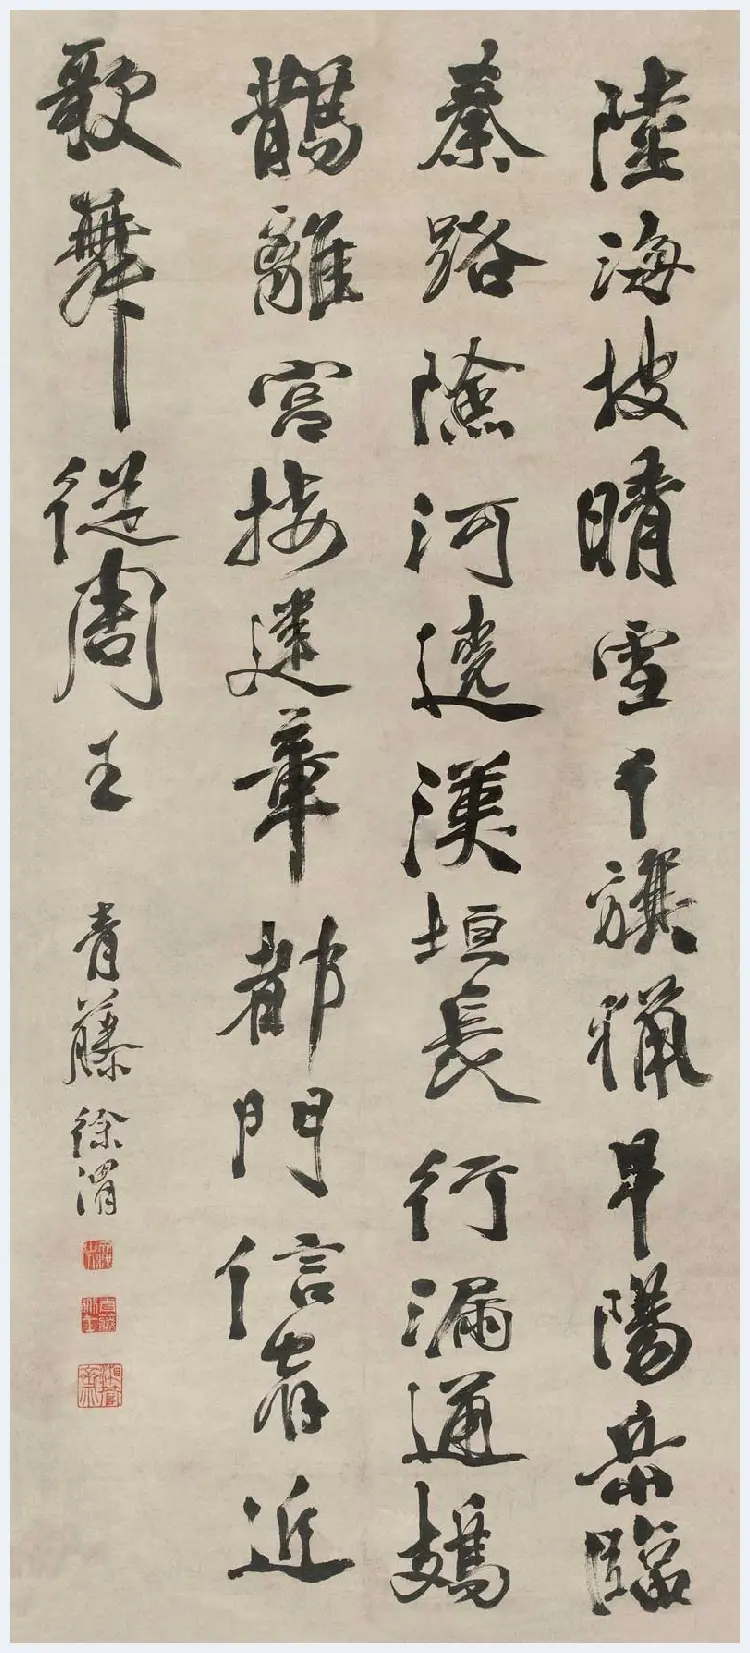 陸海披晴雪千旗獵早陽岳臨
秦路險河遶漢垣長行漏通鳷
鵲離宮接建章都門信宿近
歌舞從周王
青藤徐渭